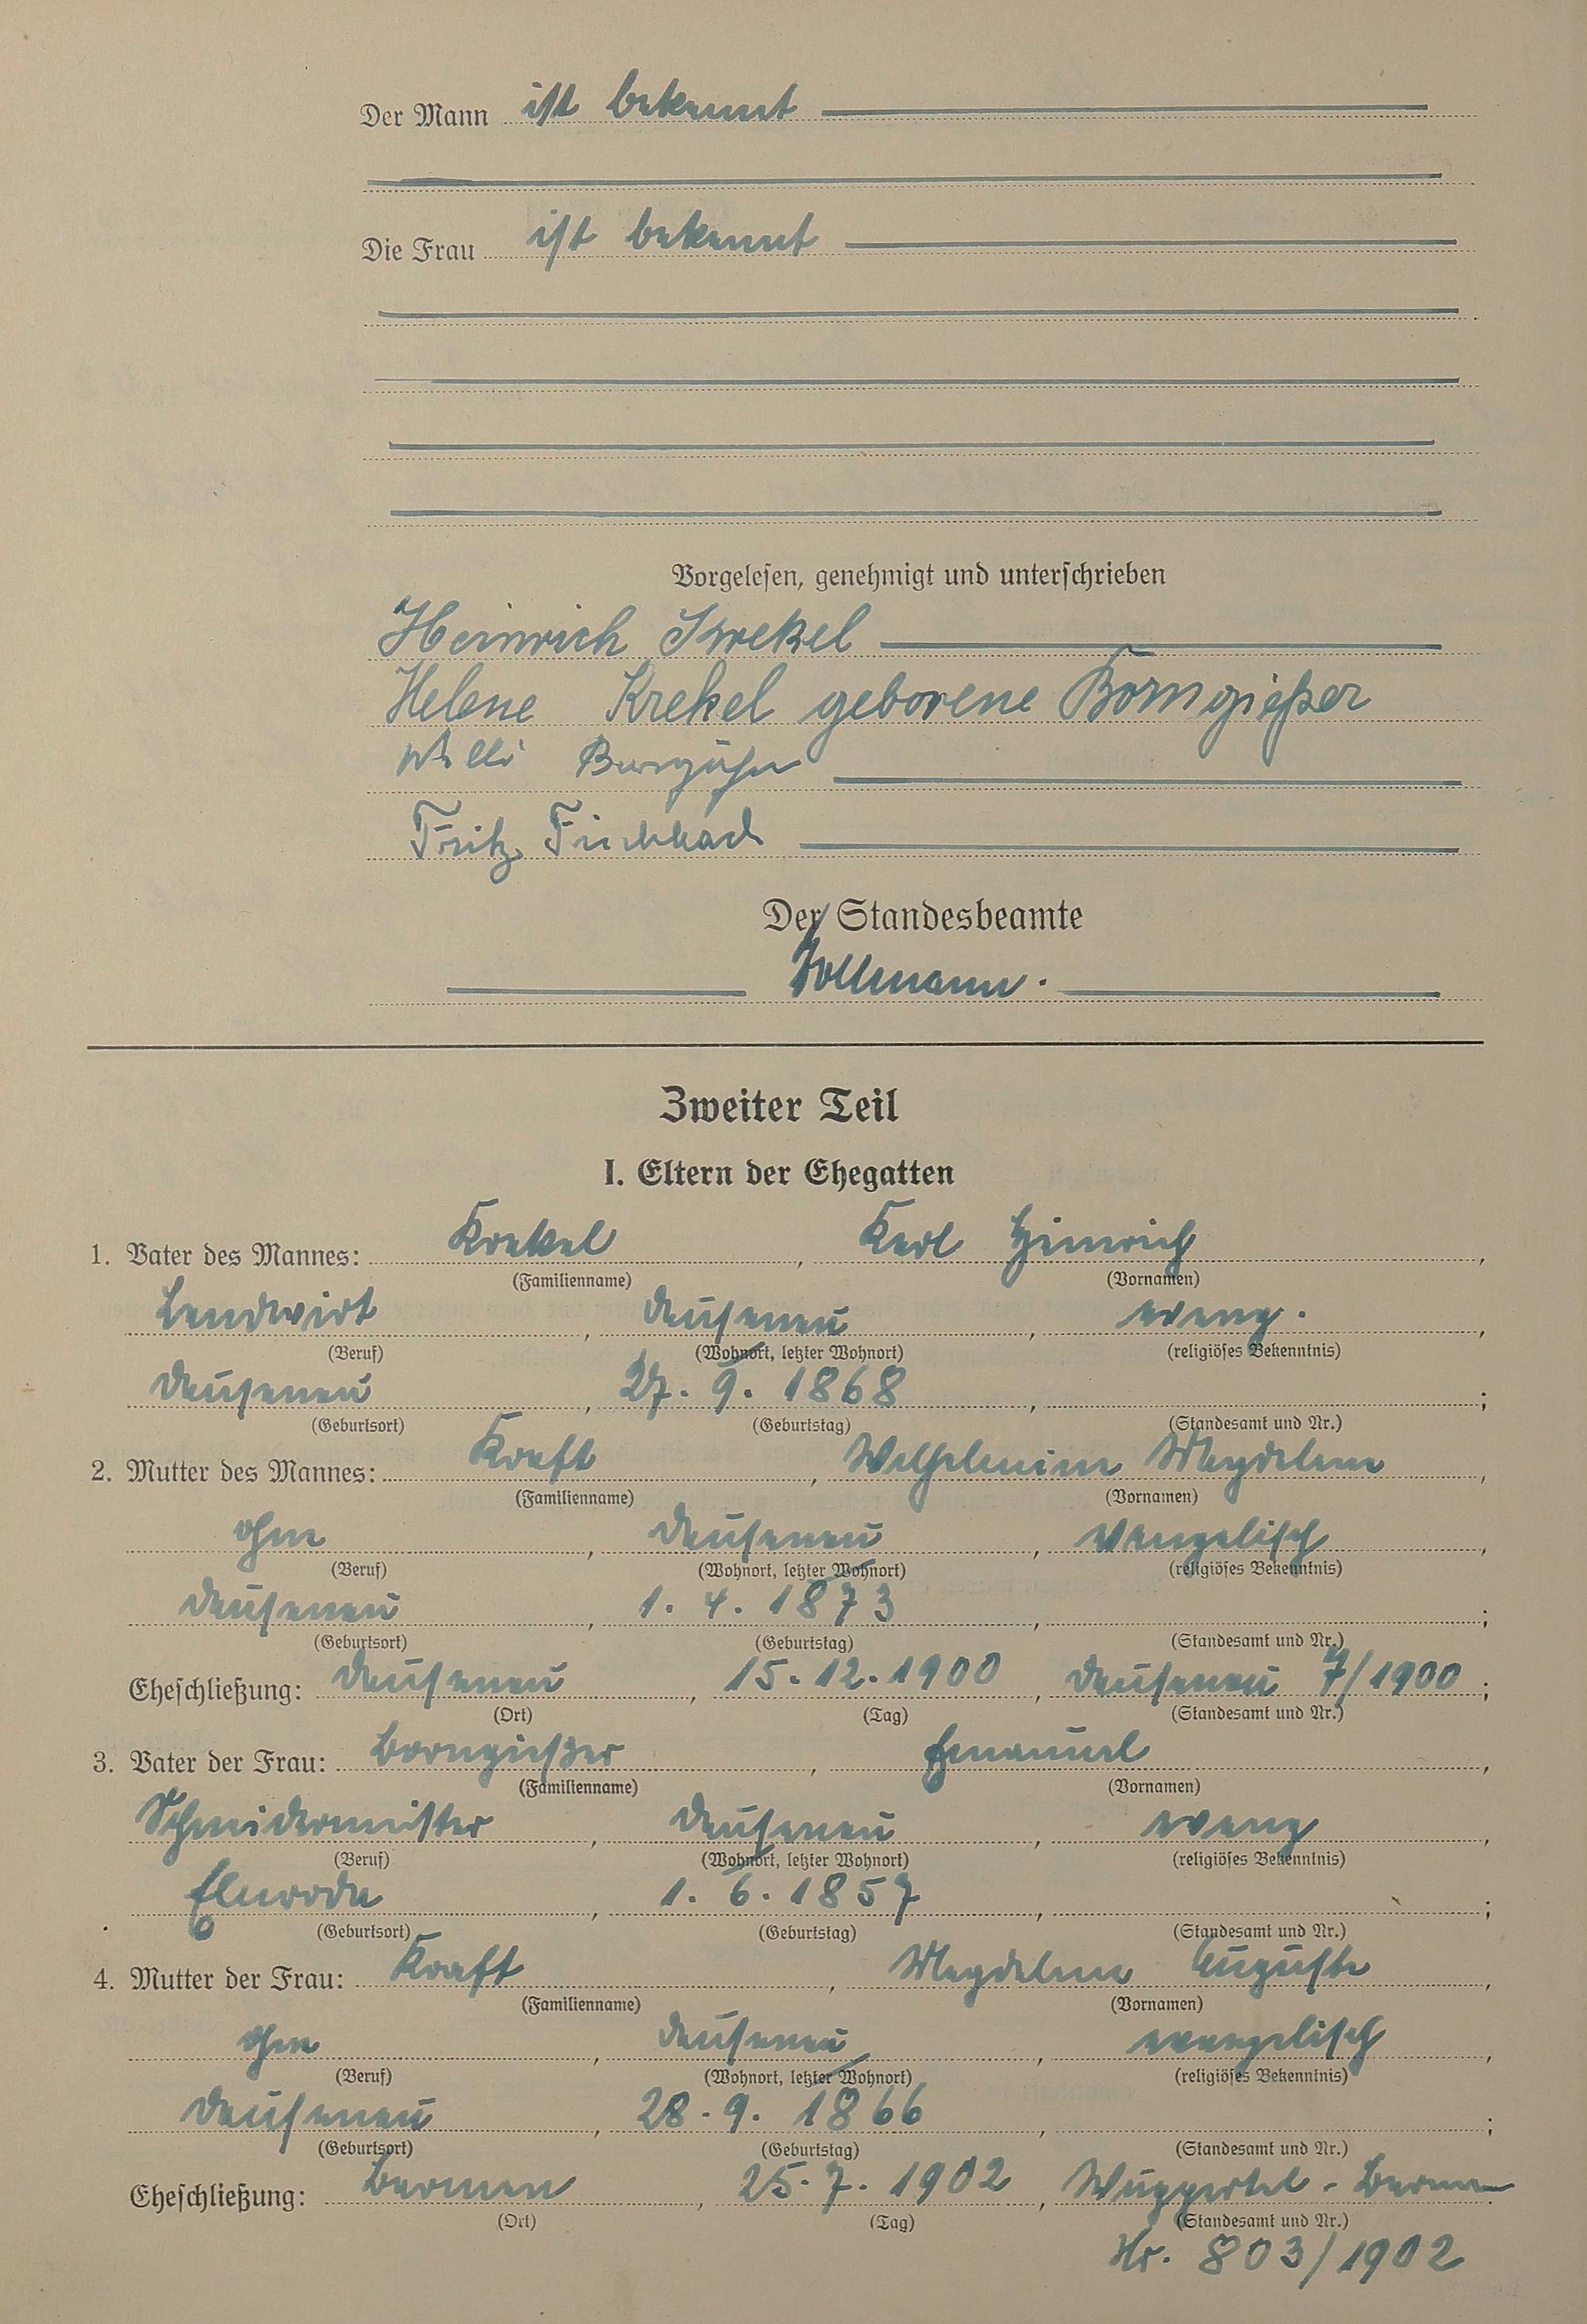 Der Mann ist bekannt
Die Frau ist bekannt
Vorgelesen, genehmigt und unterschrieben
Heinrich Krekel
Helene Krekel geborene Borngießer
Willi
Fritz
Der Standesbeamte
Zweiter Teil
I. Eltern der Ehegatten
1. Vater des Mannes: Krekel, Karl Heinrich,
(Familienname) (Vornamen)
Landwirt, Dausenau, evang.,
(Beruf) (Wohnort, letzter Wohnort) (religiöses Bekenntnis)
Dausenau, 27. 9. 1868, ;
(Geburtsort) (Geburtstag) (Standesamt und Nr.)
2. Mutter des Mannes: Kraft, Wilhelmine Magdalene,
(Familienname) (Vornamen)
ohne, Dausenau, evangelisch,
(Beruf) (Wohnort, letzter Wohnort) (religiöses Bekenntnis)
Dausenau, 1. 4. 1873, ;
(Geburtsort) (Geburtstag) (Standesamt und Nr.)
Eheschließung: Dausenau, 15. 12. 1900, Dausenau 7/1900;
(Ort) (Tag) (Standesamt und Nr.)
3. Vater der Frau: Borngießer, Emanuel,
(Familienname) (Vornamen)
Schneidermeister, Dausenau, evang,
(Beruf) (Wohnort, letzter Wohnort) (religiöses Bekenntnis)
1. 6. 1857, ;
(Geburtsort) (Geburtstag) (Standesamt und Nr.)
4. Mutter der Frau: Kraft, Magdalene Auguste,
(Familienname) (Vornamen)
ohne, Dausenau, evangelisch,
(Beruf) (Wohnort, letzter Wohnort) (religiöses Bekenntnis)
Dausenau, 28. 9. 1866, ;
(Geburtsort) (Geburtstag) (Standesamt und Nr.)
Eheschließung: Barmen, 25. 7. 1902, Wuppertal-Barmen
(Ort) (Tag) (Standesamt und Nr.)
Nr. 803/1902